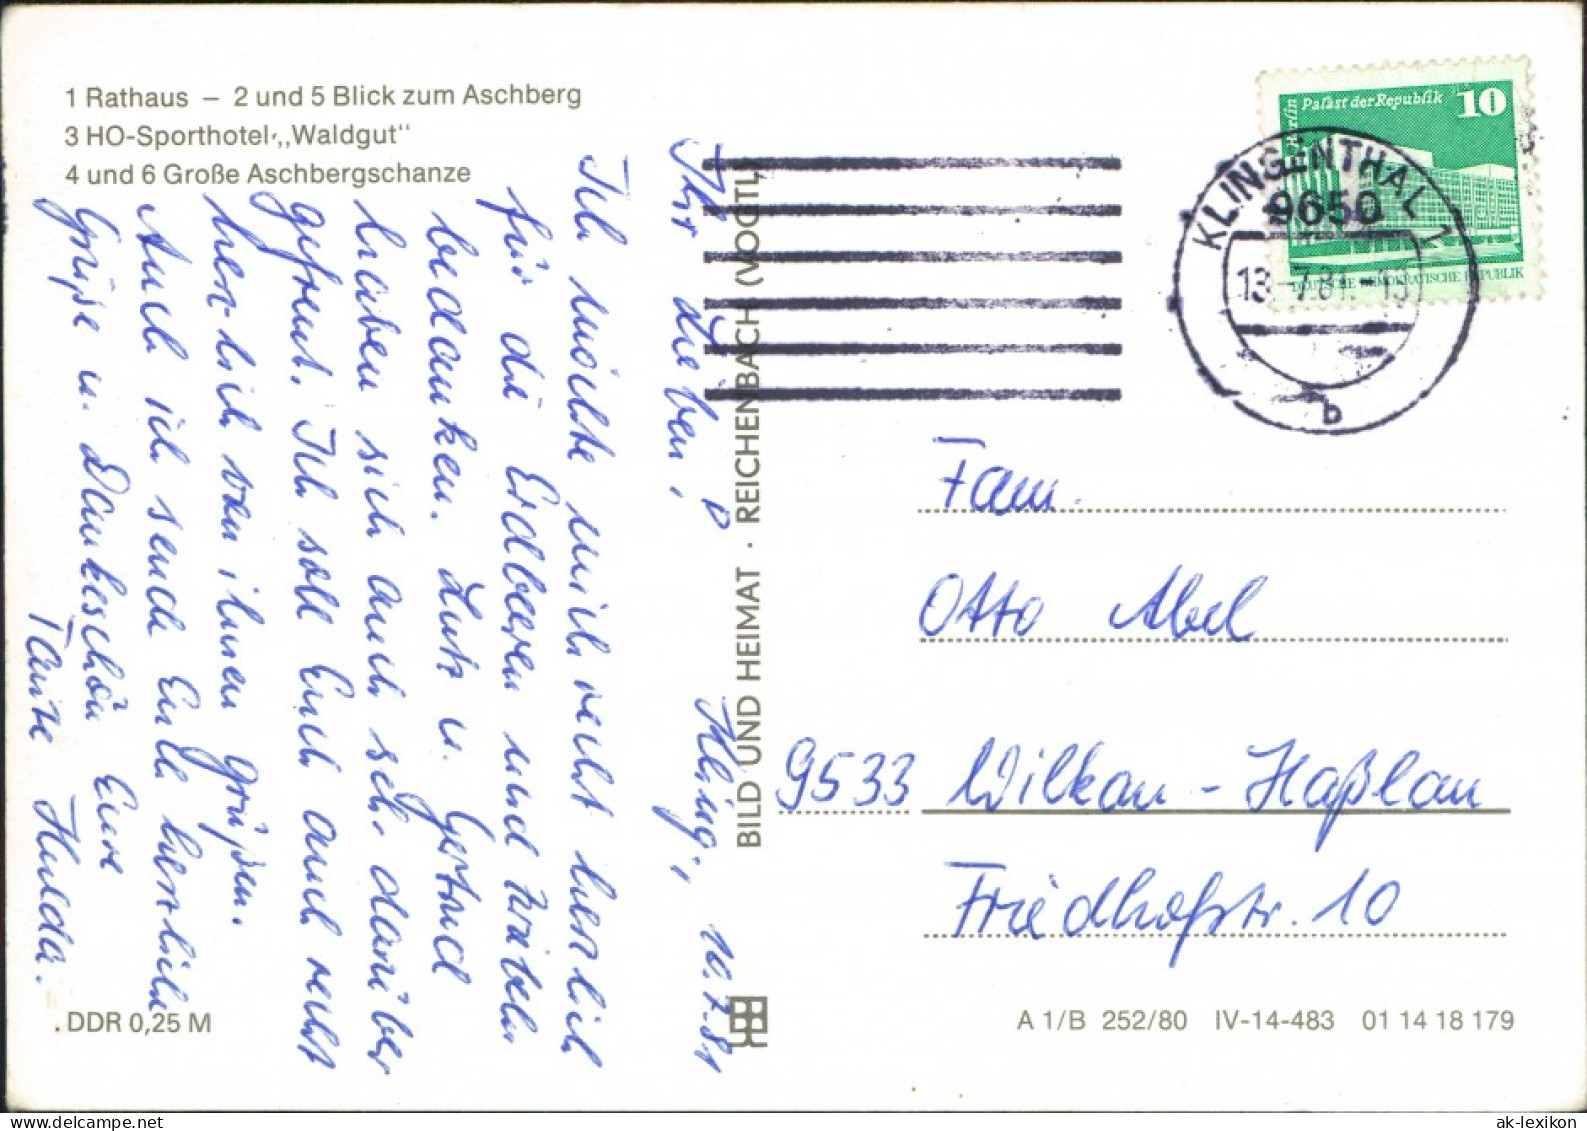 1 Rathaus – 2 und 5 Blick zum Aschberg
3 HO-Sporthotel „Waldgut“
4 und 6 Große Aschbergschanze
Kling., 10.7.81
Ihr Lieben!
Ich möchte mich recht herzlich
für die Erdbeeren und
bedanken. Lutz u. Gertrud
haben sich auch sehr darüber
gefreut. Ich soll Euch auch recht
herzlich von ihnen grüßen.
Auch ich sende Euch herzliche
Grüße u. Dankeschön Eure
Tante Hulda.
DDR 0,25 M
BILD UND HEIMAT · REICHENBACH (VOGTL)
Berlin Palast der Republik 10
DEUTSCHE DEMOKRATISCHE REPUBLIK
KLINGENTHAL 1
9650
13.-7.81.-13
b
Fam.
Otto Abel
9533 Wilkau-Haßlau
Friedhofstr. 10
A 1/B 252/80 IV-14-483 01 14 18 179
ak-lexikon.com